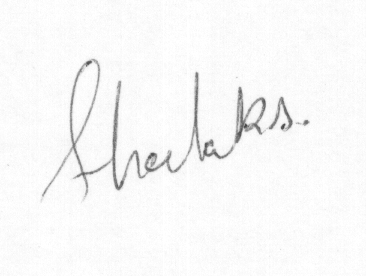 Sheela K.S.